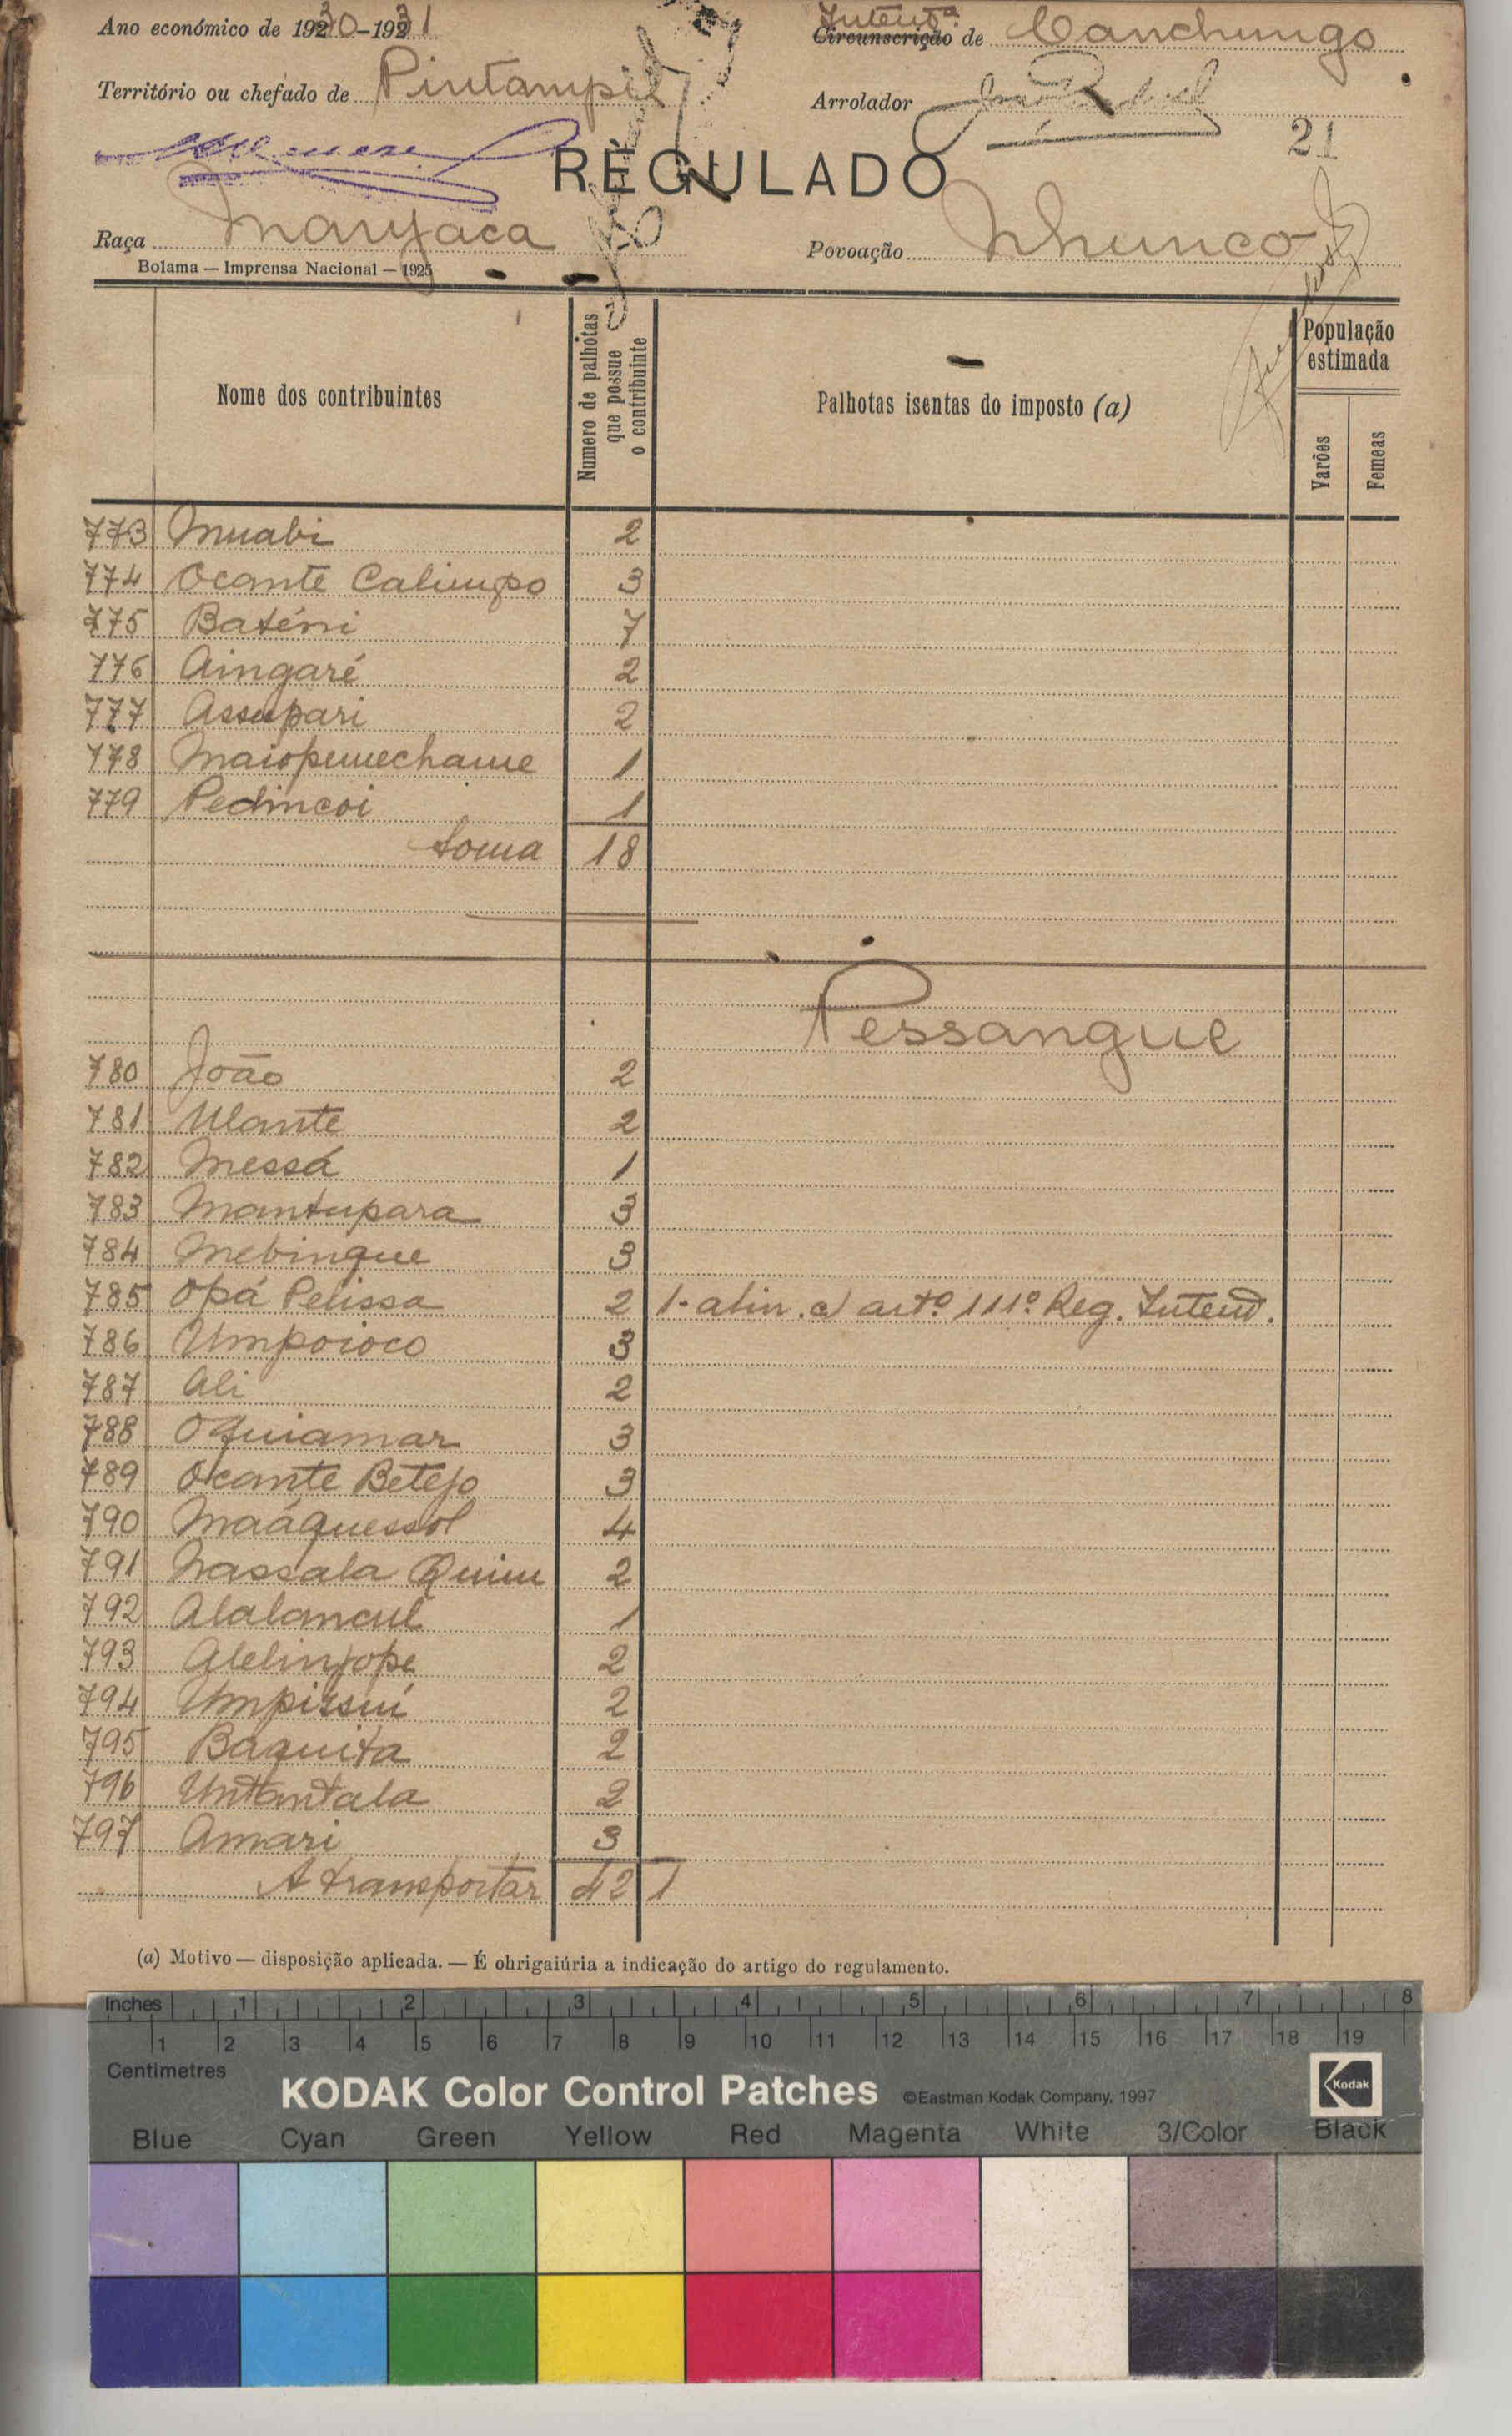 Ano económico de 1930-1931
Intend.ª
Circunscrição de Canchungo
Território ou chefado de Pintampil
Arrolador
21
REGULADO
Raça Manjaca
Povoação Nhunco
Bolama — Imprensa Nacional — 1925
Nome dos contribuintes
Numero de palhotas que possue o contribuinte
Palhotas isentas do imposto (a)
População estimada
Varões
Femeas
773 Muabi 2
774 Ocante Calimpo 3
775 Baténi 7
776 Aingaré 2
777 Assupari 2
778 1
779 Pedincoi 1
Soma 18
Pessangue
780 João 2
781 Ulante 2
782 Messá 1
783 Mantupara 3
784 Mebingue 3
785 Opá Pelissa 2 1- alin. c) artº 111º Reg. Intend.
786 Umpoioco 3
787 Ali 2
788 Oquiamar 3
789 Ocante Betejo 3
790 Maáquessol 4
791 Nassala Quim 2
792 Alalancul 1
793 Alelinjope 2
794 Umpissuí 2
795 Baquita 2
796 Untantala 2
797 Amari 3
A transportar 42 1
(a) Motivo — disposição aplicada. — É ohrigaiúria a indicação do artigo do regulamento.
Inches 1 2 3 4 5 6 7 8
1 2 3 4 5 6 7 8 9 10 11 12 13 14 15 16 17 18 19
Centimetres
KODAK Color Control Patches ©Eastman Kodak Company, 1997 Kodak
Blue Cyan Green Yellow Red Magenta White 3/Color Black